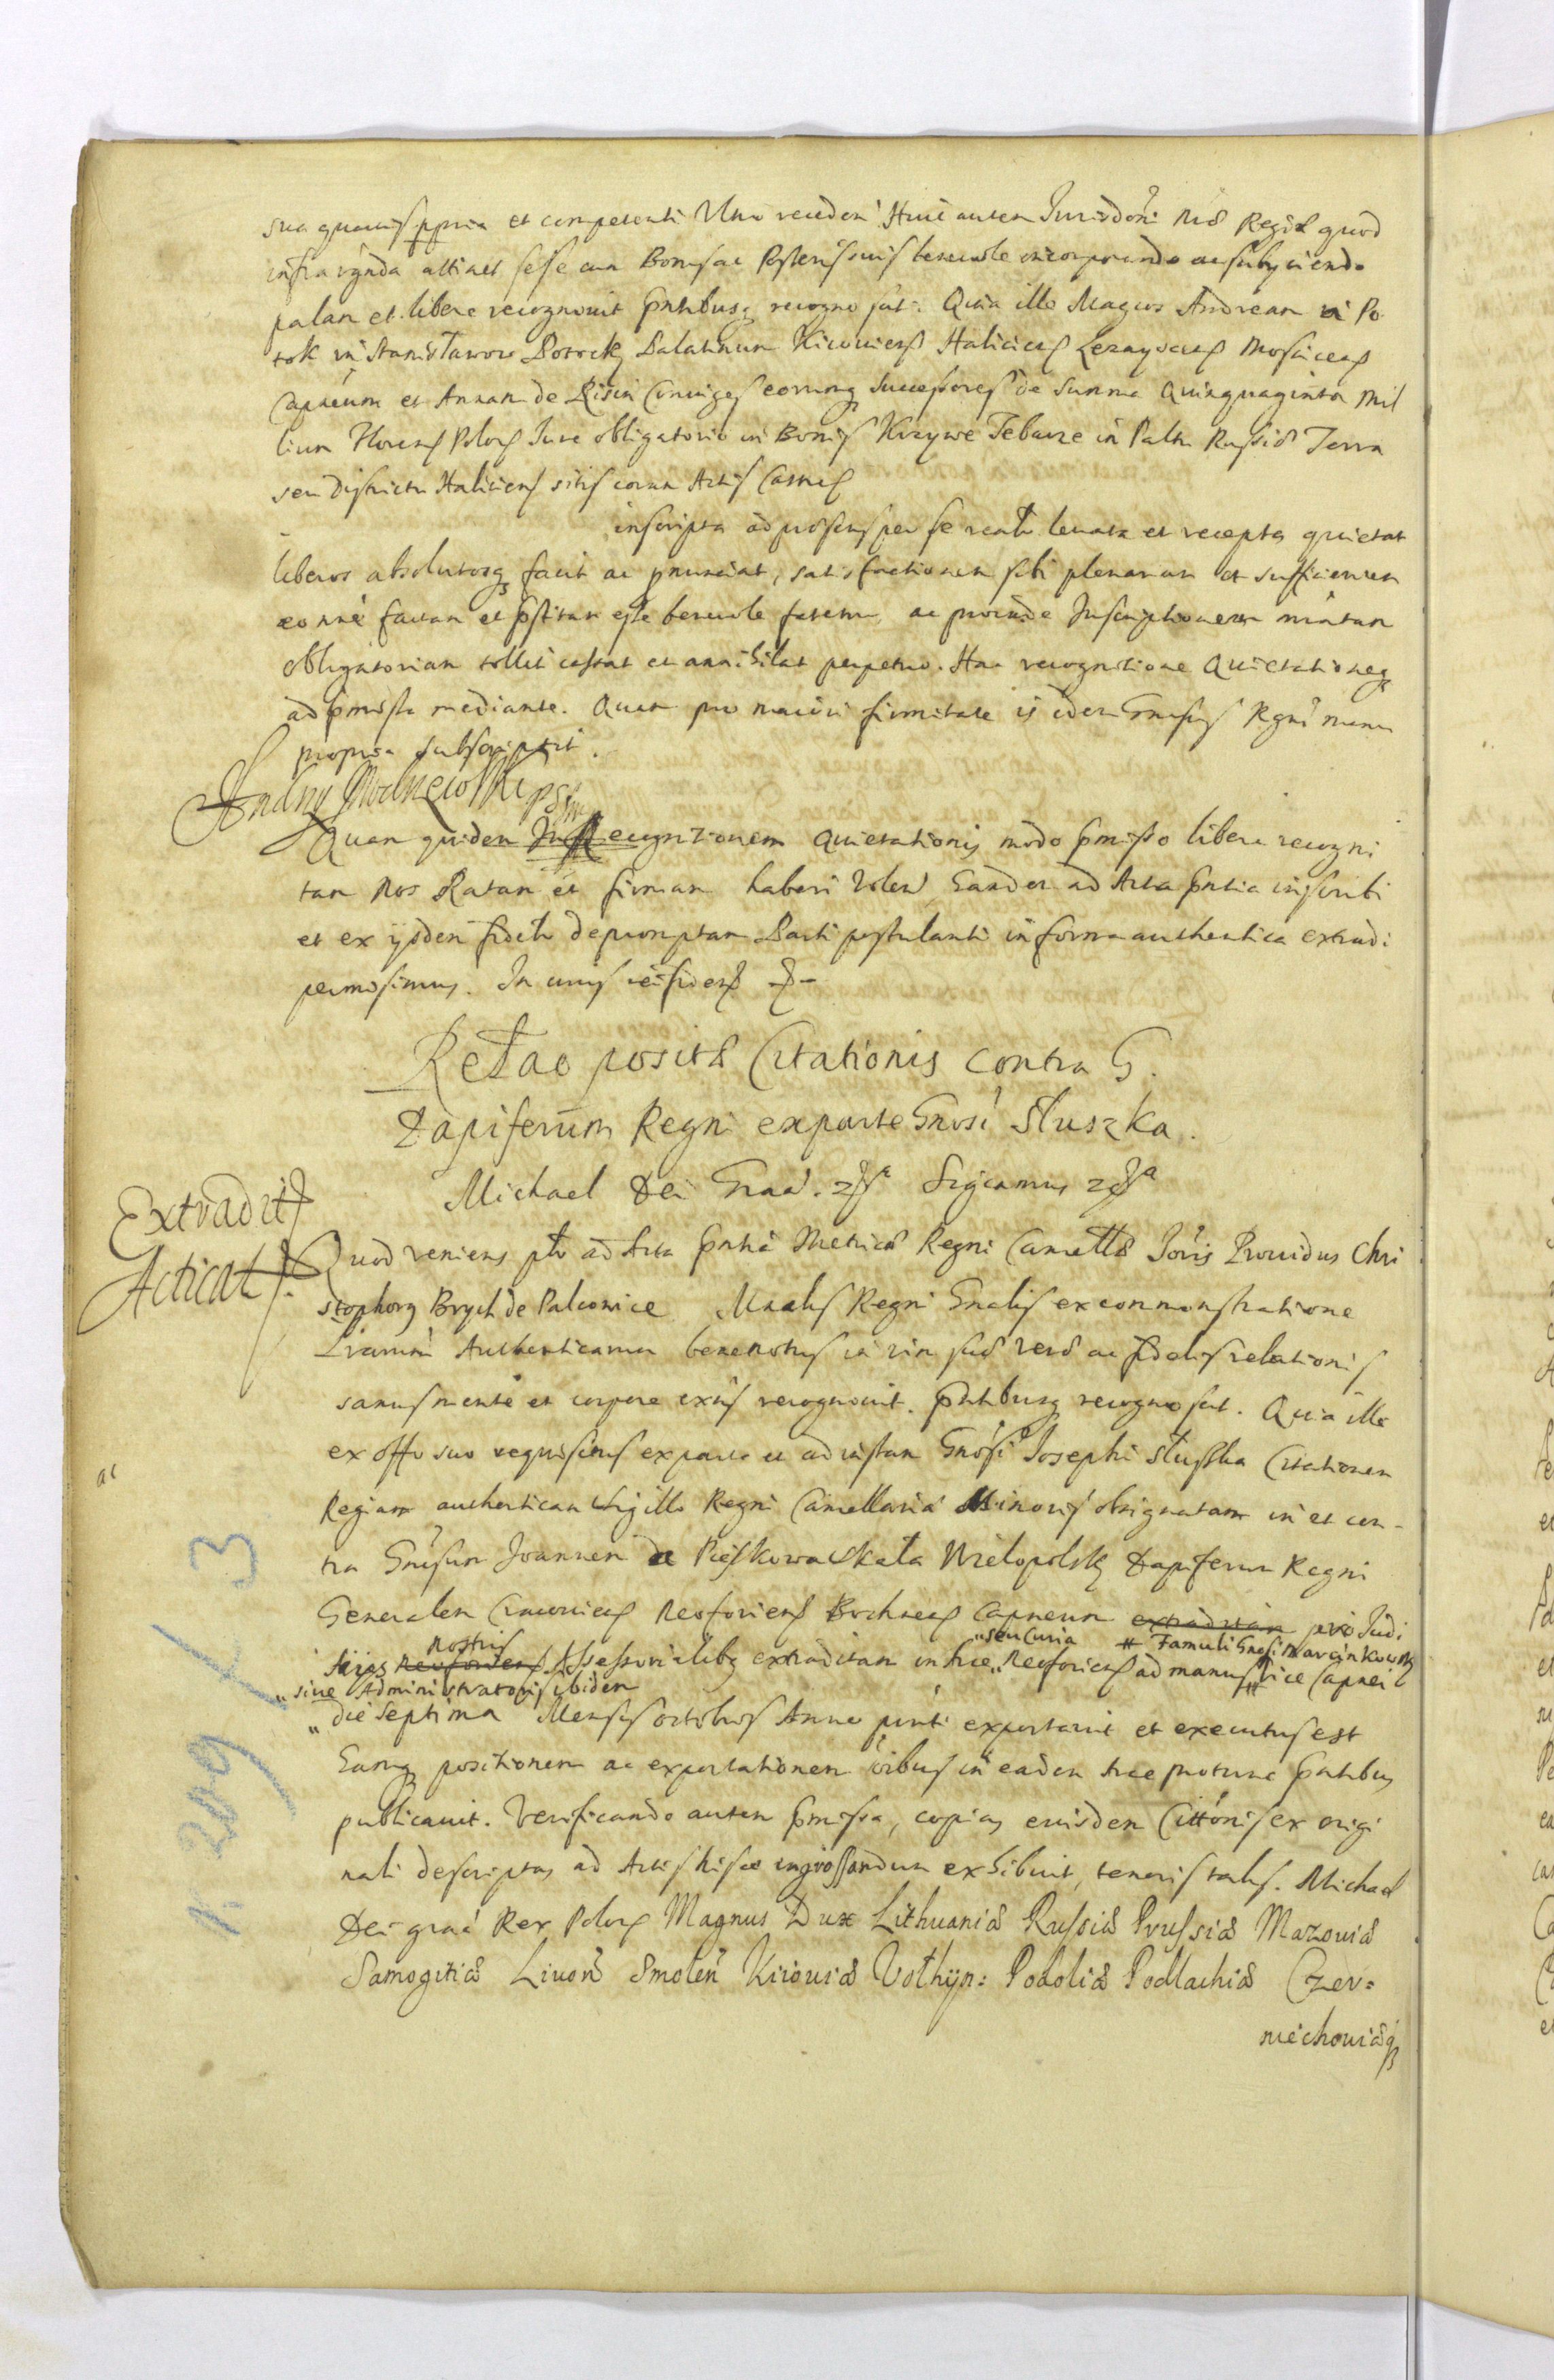 sua quavis ppria et competenti Uno recedeń Huic autem Jurisdōni Nrӕ Regiӕ quod
infra ignda attinet sese cum Bonis ac Posteris suis benevole incorporando ac subyciendo
palam et libere recognovit Pntibusq recognoscit. Quia ille Magcos Andream in Po
tok in Stanisławow Potocky Palatinum Kijovien Halicien Lezayscen Moscicen
Capneum et Annam de Risin Coniuges eorumq Successores de Summa Quinquaginta mil
lium Floren Polon Jure obligatorio in Bonis Krzywe Tebarze in Paltu Russiӕ Terra
seu Districtu Halicien sitis coram Actis Castren
inscripta ad prӕsens per se realr levata et recepta quietat
liberos absolutosq facit ac pnunciat, satisfactionem sibi plenariam et sufficientem
eo nne factam et pstitam esse benevole fatetur, ac proinde Inscriptionem mutuam
obligatoriam tollit cassat et annihilat perpetuo. Hac recognitione Quietationeq
ad pmissa mediante. Quam pro maiori firmitate is idem Gnesus Rgns manu
propria subscripsit.
Quam quidem Recognitionem Quietationis modo pmisso libere recogni
tam Nos Ratam et firmam haberi volen Eandem ad Acta Pntia inscribi
et ex ijsdem fidelr depromptam Parti postulanti in forma authentica extradi
permisimus. In cuius rei fidem
Relao positӕ Citationis contra G.
Dapiferum Regni ex parte Gnosi Słuszka.
Michael Dei Graā. Sigcamus
Extradit
Acticat
Quod veniens plr ad Acta Pntia Metricӕ Regni Cancellӕ Joris Providus Chri
stophorq Brych de Palconice Mralis Regni Gnalis ex commonstratione
Lrarum Authenticarum benenotus in vim suӕ verӕ ac fidelis relationis
sanus mente et corpore exñs recognovit. Pntibusq recognoscit. Quia ille
ac
ex offo suo requisitus ex parte et ad instan Gnosi Josephi Słuszka Citationem
Regiam authenticam Sigillo Regni Cancellariӕ Minoris obsignatam in et con-
tra Gnesum Joannem de Pieskowa Skała Wielopolsky Dapiferum Regni
Generalem Cracovien Neoforien Bochnen Capneum extraditam pro Judi
nostris seu Curia # Famuli Gnesi Marcinkowsky
scijs Neoforien Assessorialibq extraditam in hac Neoforien ad manus vice Capnei
sive Administratoris ibidem
die Septima Mensis octobris Anno pnti exportavit et executus est
Eamq positionem ac exportationem oibus in eadem Arce protunc pntibus
publicavit. Verificando autem pmissa, copiam eiusdem Cittōnis ex origi
nali descriptam ad Actis hisce ingrossandum exhibuit, tenoris talis. Michael
Dei graā Rex Polon Magnus Dux Lithuaniӕ Russiӕ Prussiӕ Mazoviӕ
Samogitiӕ Livon Smolen Kijoviӕ Vołhijn: Podoliӕ Podlachiӕ Czer=
niechoviӕq
k 209 / 3